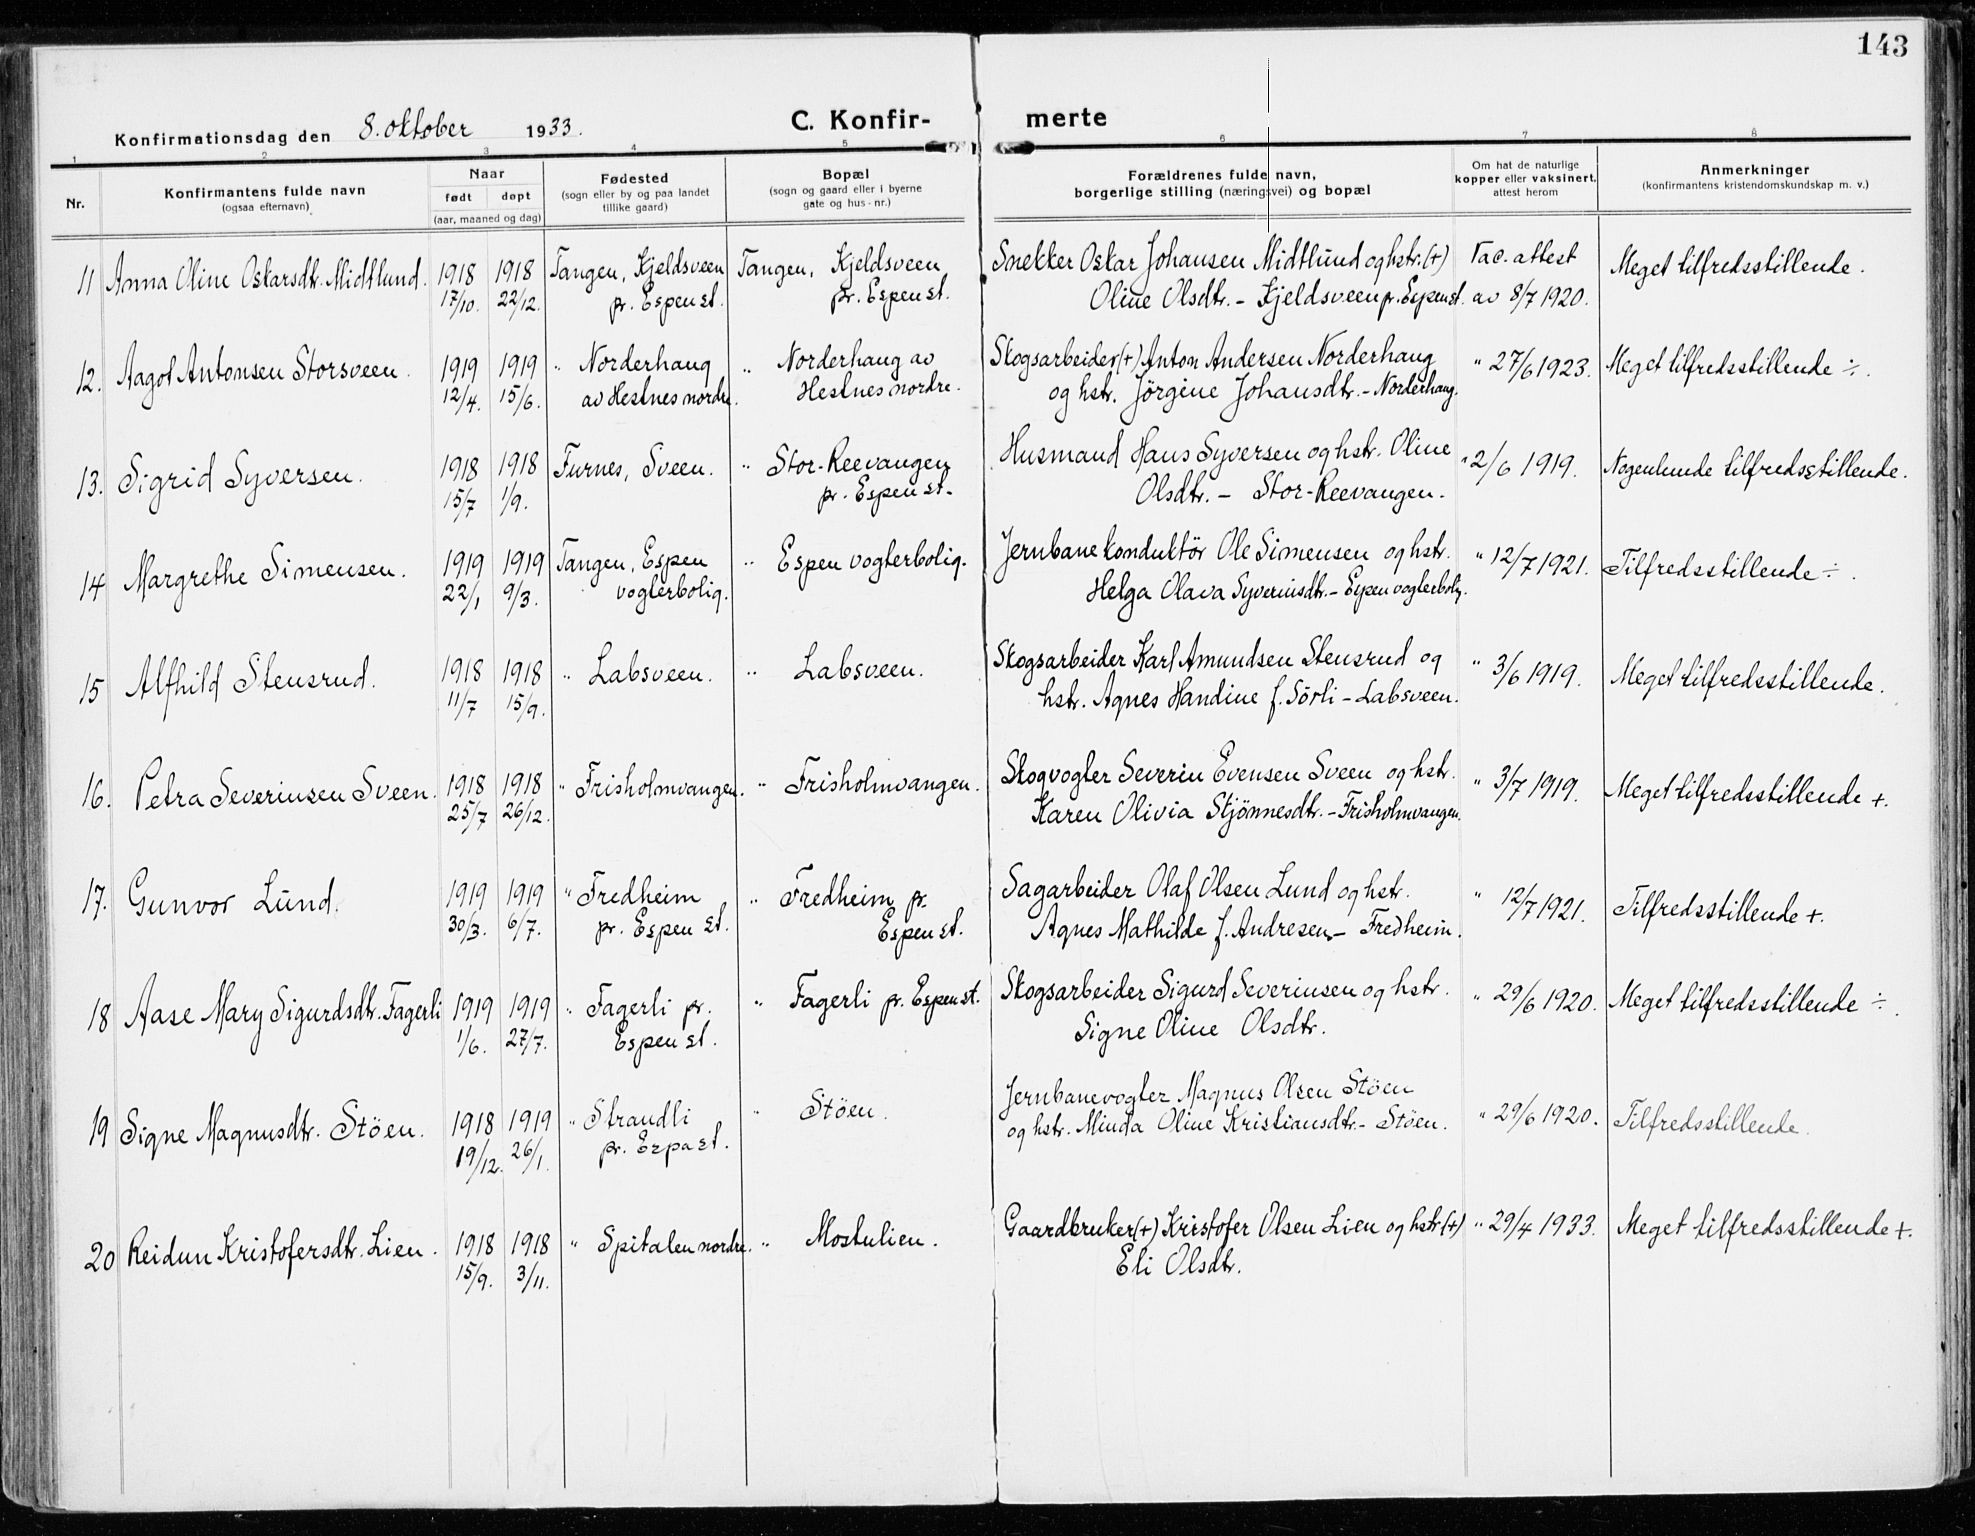 143
Konfirmationsdag den 8. oktober 1933.
C. Konfir- merte
1 2 3 4 5 6 7 8
Nr.
Konfirmantens fulde navn
(ogsaa efternavn)
Naar
født døpt
(aar, maaned og dag)
Fødested
(sogn eller by og paa landet
tillike gaard)
Bopæl
(sogn og gaard eller i byerne
gate og hus-nr.)
Forældrenes fulde navn,
borgerlige stilling (næringsvei) og bopæl
Om hat de naturlige
kopper eller vaksinert,
attest herom
Anmerkninger
(konfirmantens kristendomskundskap m. v.)
11 Anna Oline Oskarsdtr. Midtlund. 1918 1918 Tangen, Kjeldsveen Tangen, Kjeldsveen Snekker Oskar Johansen Midtlund og hstr.(+) Vac. attest Meget tilfredsstillende.
17/10. 22/12. pr. Espen st. pr. Espen st. Oline Olsdtr. – Kjeldsveen pr. Espen st. av 8/7 1920.
12. Aagot Antonsen Storsveen. 1919 1919 " Norderhaug " Norderhaug av Skogsarbeider(+) Anton Andersen Norderhaug " 27/6 1923. Meget tilfredsstillende ÷.
12/4. 15/6. av Hestnes nordre. Hestnes nordre. og hstr. Jørgine Johansdtr. – Norderhaug.
13. Sigrid Syversen. 1918 1918 Furnes, Sveen. " Stor-Reevangen Husmand Hans Syversen og hstr. Oline " 2/6 1919. Nogenlunde tilfredsstillende.
15/7 1/9. pr. Espen st. Olsdtr. – Stor-Reevangen.
14 Margrethe Simensen. 1919 1919 Tangen, Espen " Espen vogterbolig. Jernbanekonduktör Ole Simensen og hstr. " 12/7 1921. Tilfredsstillende ÷.
22/1 9/3. vogterbolig. Helga Olava Syverinsdtr. – Espen vogterbolig.
15 Alfhild Stensrud. 1918 1918 " Labsveen. " Labsveen. Skogsarbeider Karl Amundsen Stensrud og " 3/6 1919. Meget tilfredsstillende.
11/7 15/9. hstr. Agnes Handine f. Sörli – Labsveen.
16. Petra Severinsen Sveen. 1918 1918 " Frisholmvangen. " Frisholmvangen. Skogvogter Severin Evensen Sveen og hstr. " 3/7 1919. Meget tilfredsstillende +.
25/7 26/12. Karen Olivia Stjönnesdtr. – Frisholmvangen.
17. Gunvor Lund. 1919 1919 " Fredheim " Fredheim pr. Sagarbeider Olaf Olsen Lund og hstr. " 12/7 1921. Tilfredsstillende +.
30/3. 6/7. pr. Espen st. Espen st. Agnes Mathilde f. Andresen – Fredheim.
18 Aase Mary Sigurdsdtr. Fagerli 1919 1919 " Fagerli pr. " Fagerli pr. Espen st. Skogsarbeider Sigurd Severinsen og hstr. " 29/6 1920. Meget tilfredsstillende ÷.
1/6. 27/7. Espen st. Signe Oline Olsdtr.
19 Signe Magnusdtr. Stöen. 1918 1919 " Strandli " Stöen. Jernbanevogter Magnus Olsen Stöen " 29/6 1920. Tilfredsstillende.
19/12. 26/1. pr. Espa st. og hstr. Minda Oline Kristiansdtr. – Stöen.
20 Reidun Kristofersdtr. Lien. 1918 1918 " Spitalen nordre. " Mostulien. Gaardbruker(+) Kristofer Olsen Lien og hstr.(+) " 29/4 1933. Meget tilfredsstillende +.
15/9. 3/11. Eli Olsdtr.